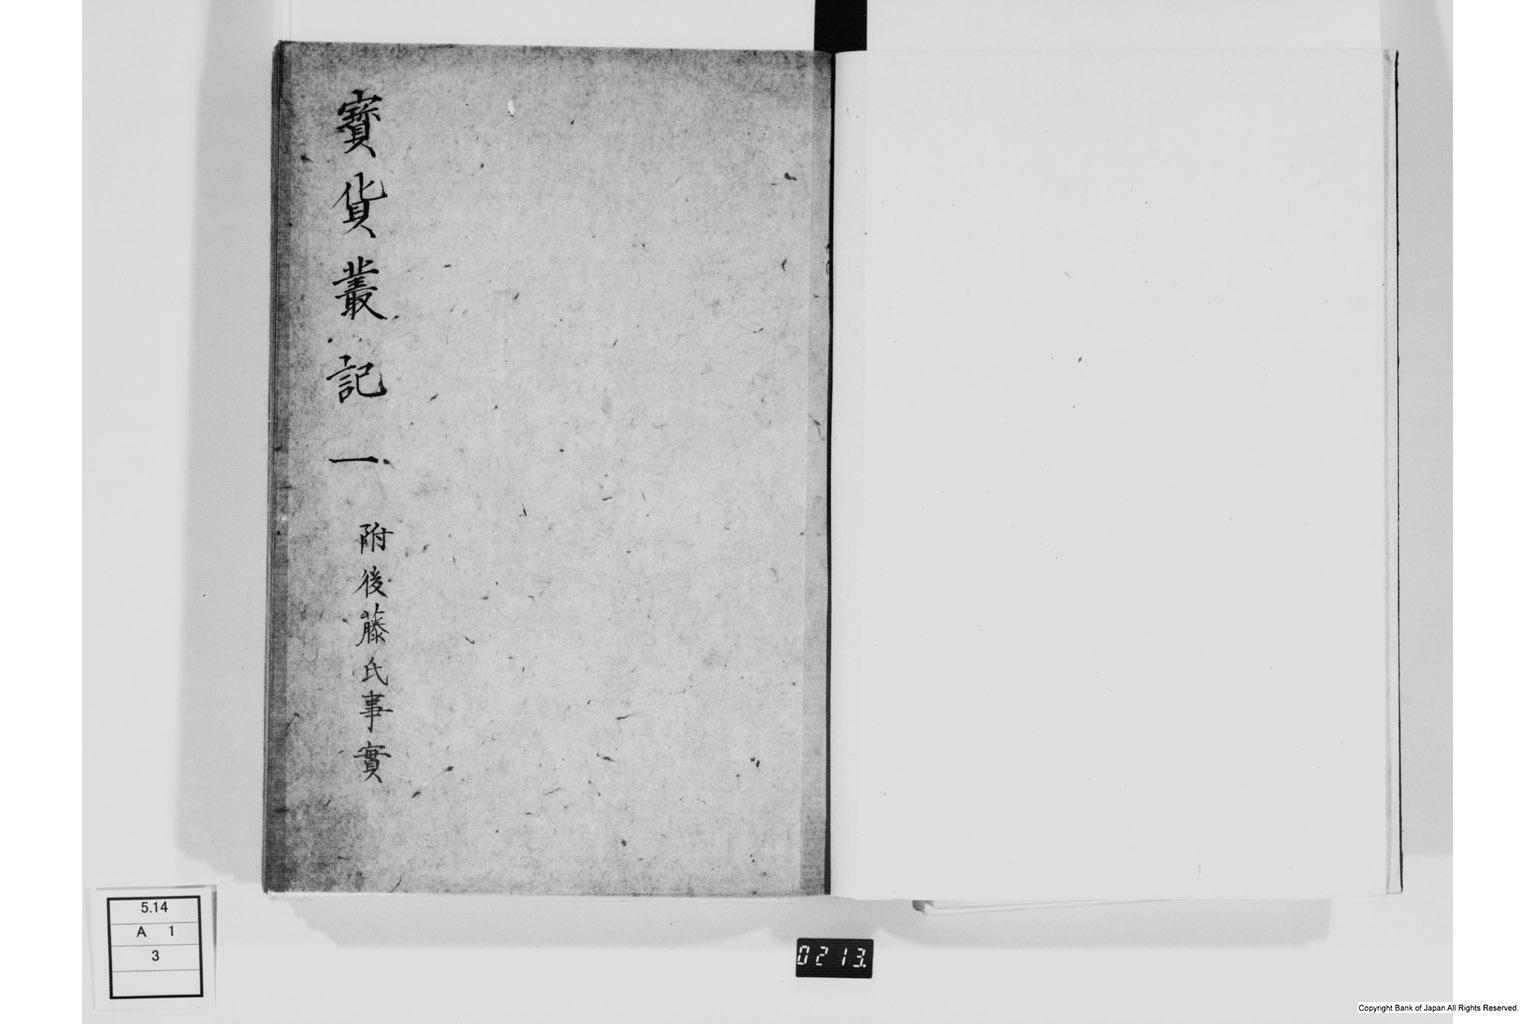 寳貨叢記一
附後藤氏事實
5.14
A 1
3
0213.
Copyright Bank of Japan All Rights Reserved.